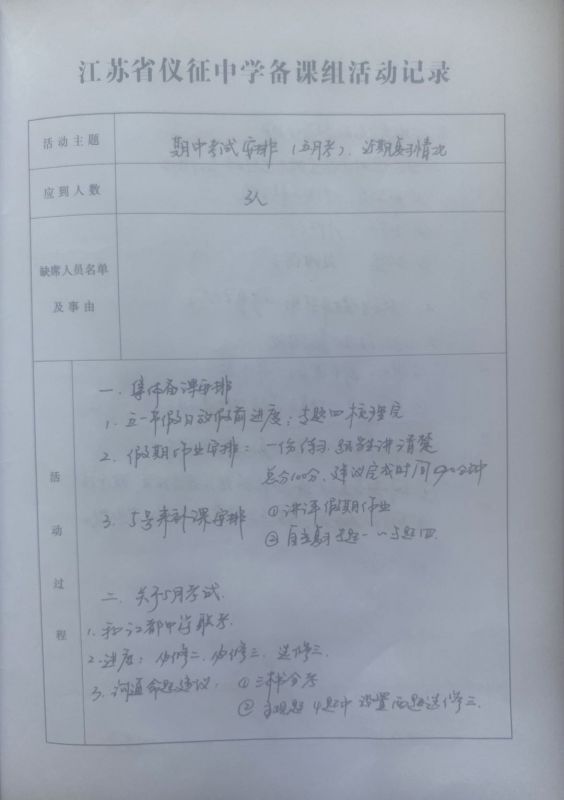 江苏省仪征中学备课组活动记录
活动主题
期中考试安排（五月考）、近期复习情况
应到人数
3人
缺席人员名单
及事由
活动过程
一. 集体备课安排
1. 五一节假日放假前进度：专题四梳理完
2. 假期作业安排：一份练习, 给学生讲清楚
总分100分, 建议完成时间90分钟
3. 5号来补课安排 ①讲评假期作业
②自主复习专题一～专题四.
二. 关于5月考试.
1. 和江都中学联考.
2. 进度：必修二、必修三、选修三.
3. 沟通命题建议： ①三本书合考
②主观题4题中设置两题选修三.